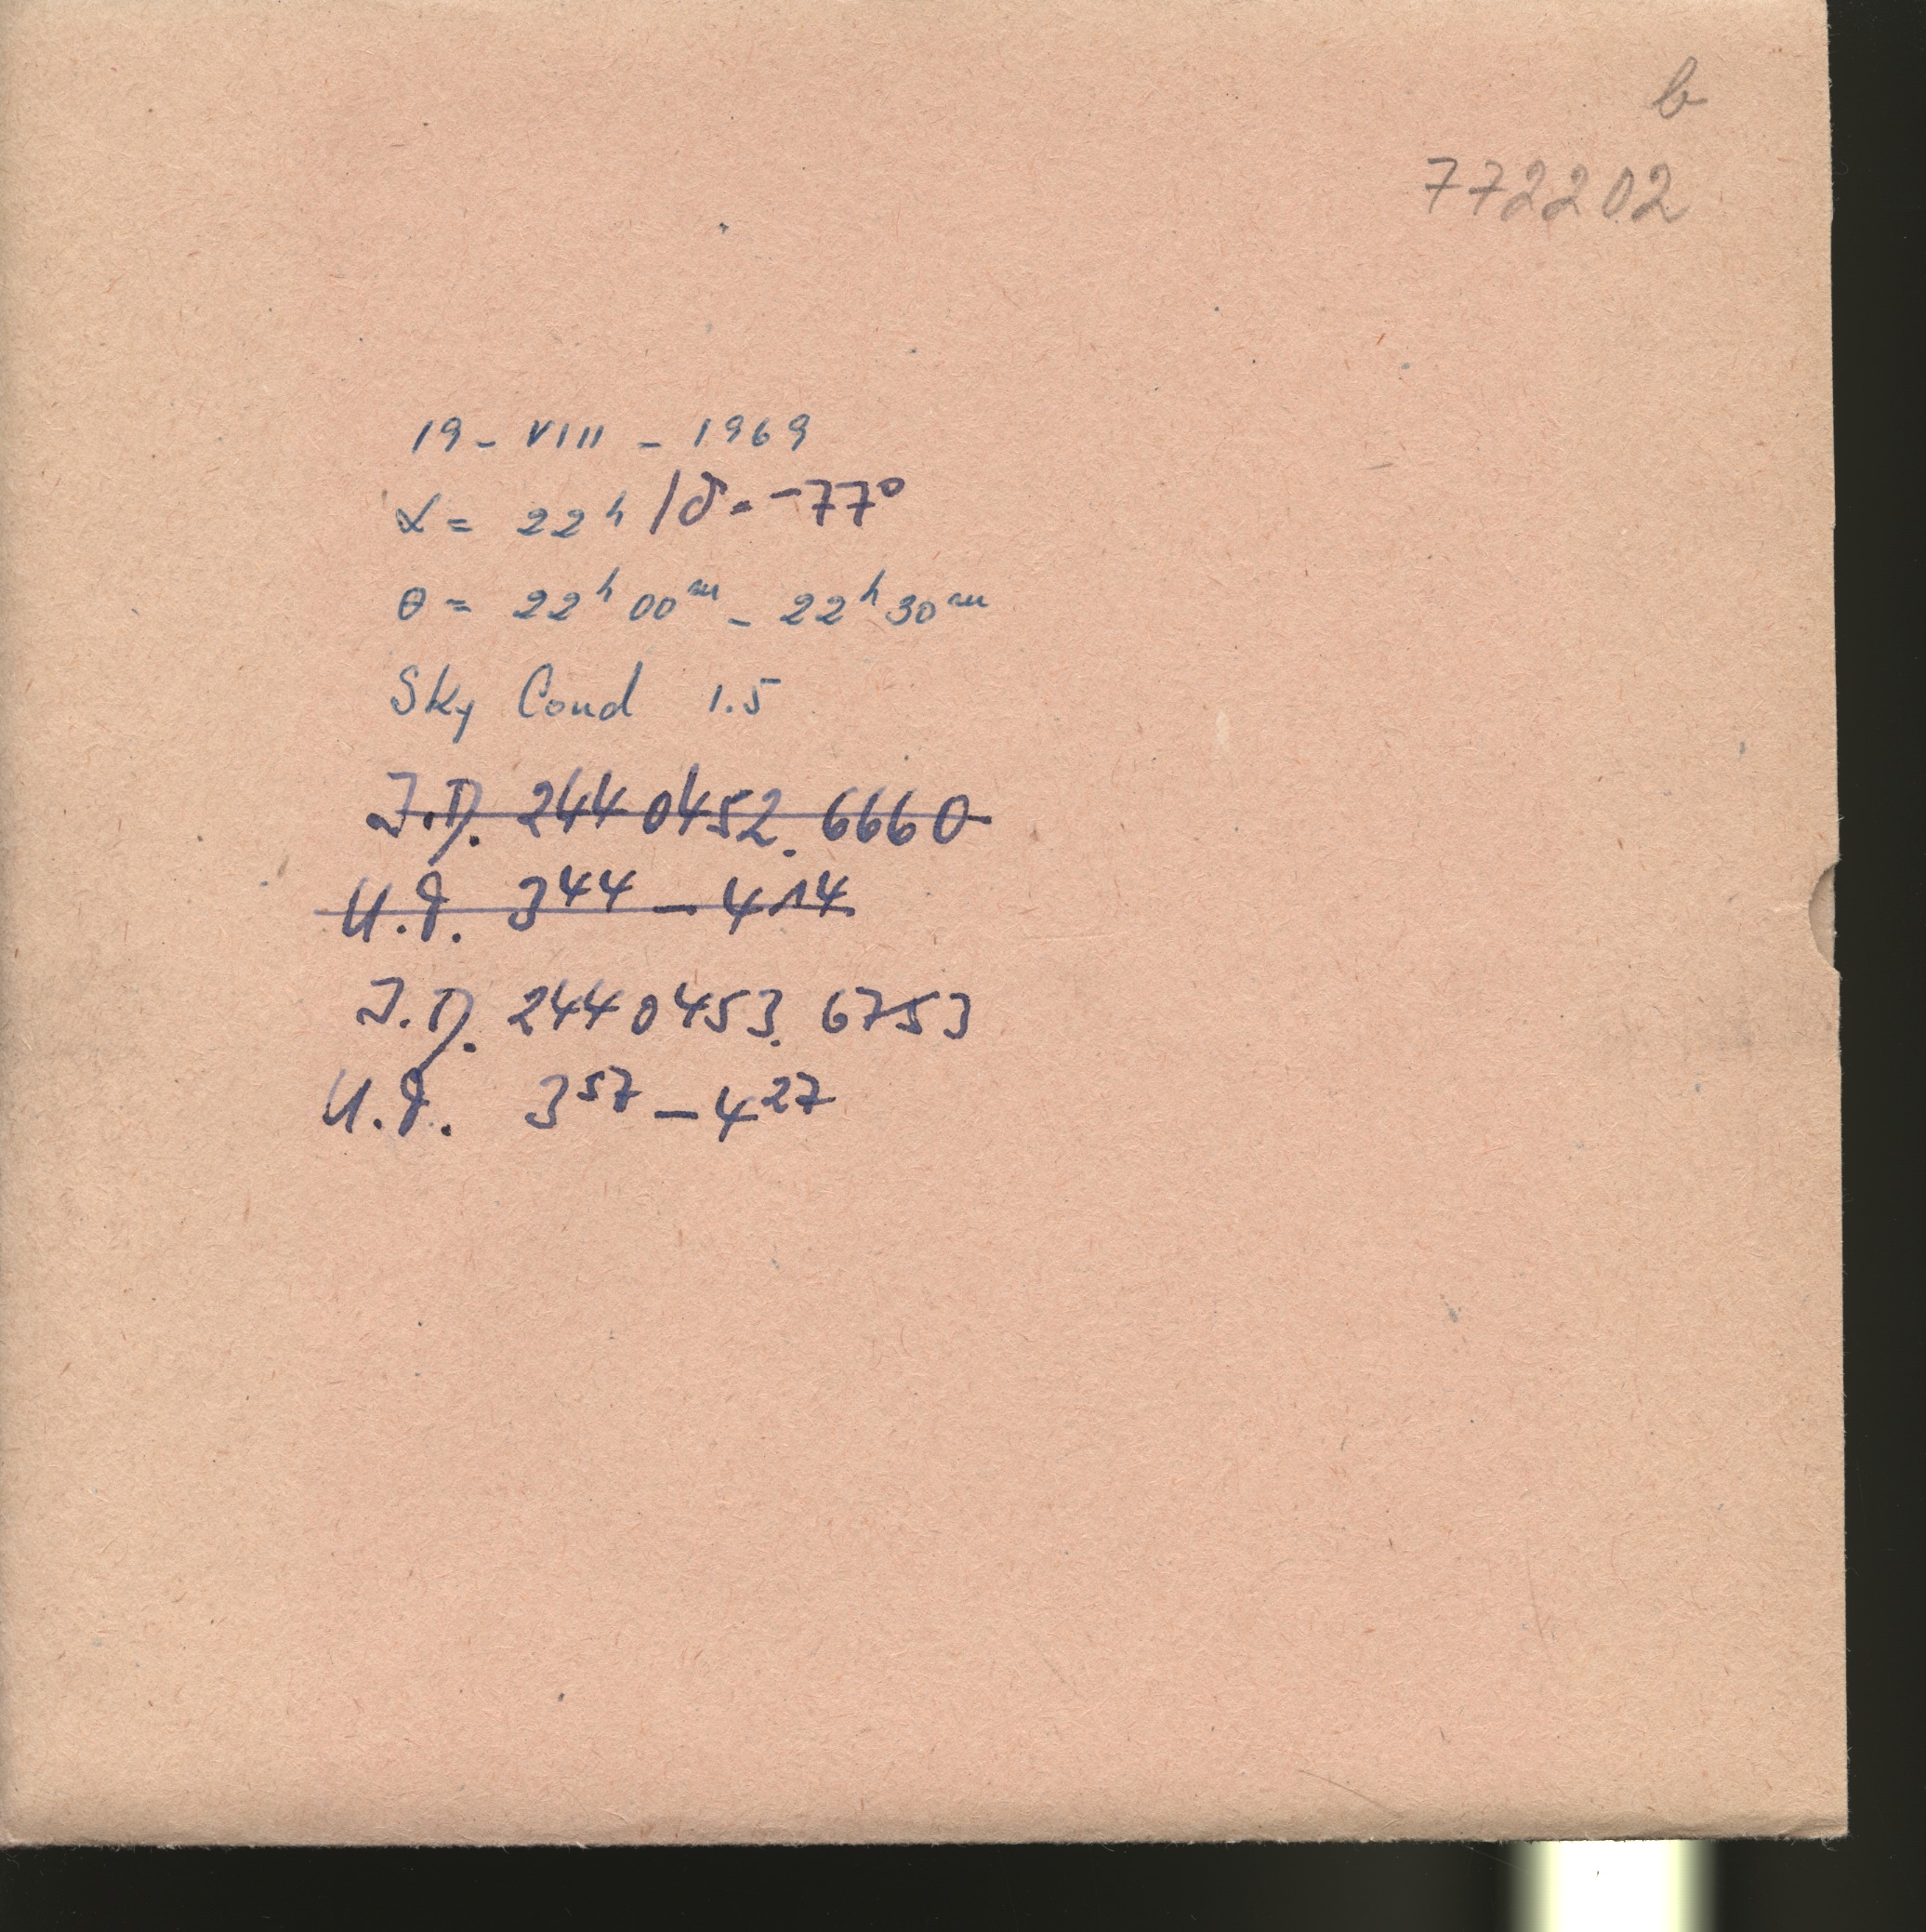 b
772202
19 - VIII - 1969
α = 22ʰ / δ = -77°
θ = 22ʰ 00ᵐ - 22ʰ 30ᵐ
Sky Cond 1.5
J.D. 2440452.6660
U.T. 3⁴⁴ - 4¹⁴
J.D. 2440453.6753
U.T. 3⁵⁷ - 4²⁷